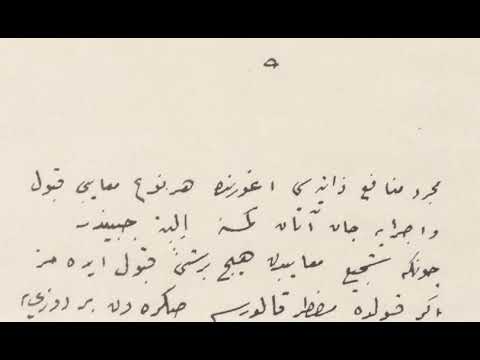 ٥
مجرد منافع ذاتیه سی اغورنده هر نوع معایبی قبول
و اجرایه جان آتان کمسه الین جبیندر
چونکه شجیع معایبدن هیچ برشی قبول ایده مز
اکر قبولده مضطر قالورسه صکره دن بر دوزی‌یه